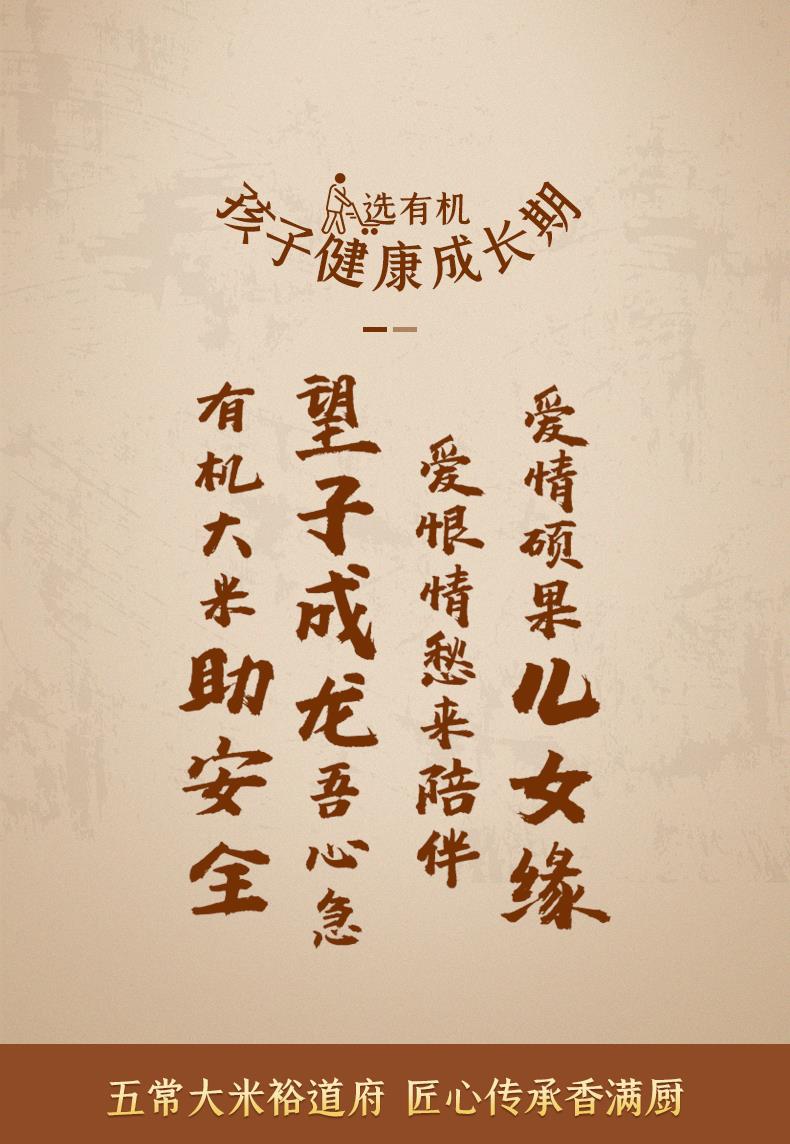 选有机
孩子健康成长期
爱情硕果儿女缘
爱恨情愁来陪伴
望子成龙吾心急
有机大米助安全
五常大米裕道府 匠心传承香满厨